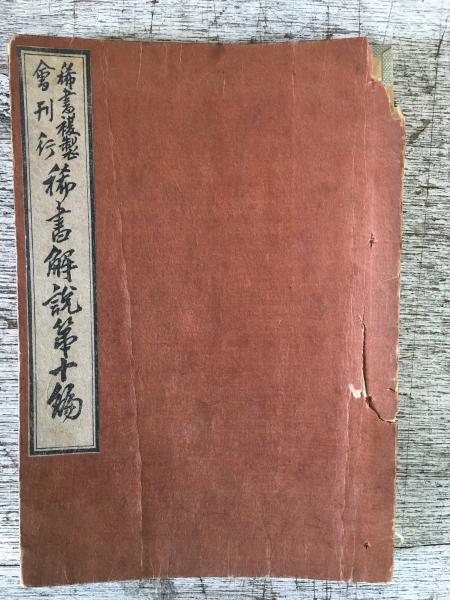 稀書複製
會刊行
稀書解説第十編